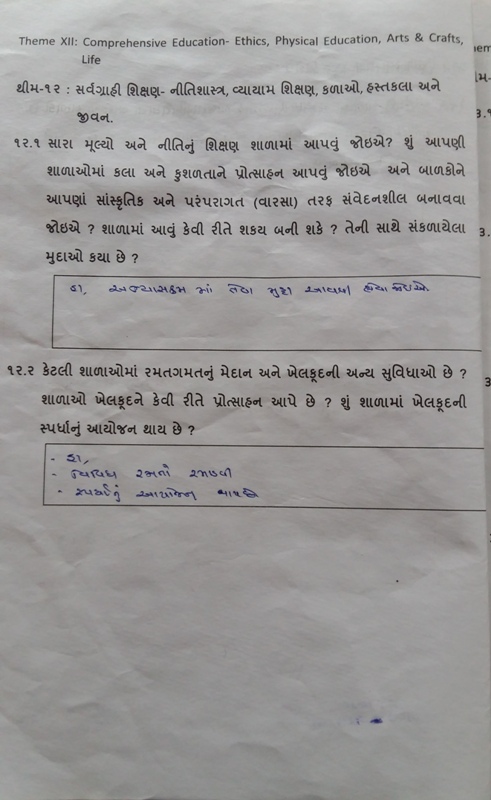 Theme XII: Comprehensive Education- Ethics, Physical Education, Arts & Crafts,
Life
થીમ-૧૨ : સર્વગ્રાહી શિક્ષણ- નીતિશાસ્ત્ર, વ્યાયામ શિક્ષણ, કળાઓ, હસ્તકલા અને
જીવન.
૧૨.૧ સારા મૂલ્યો અને નીતિનું શિક્ષણ શાળામાં આપવું જોઇએ? શું આપણી
શાળાઓમાં કલા અને કુશળતાને પ્રોત્સાહન આપવું જોઇએ અને બાળકોને
આપણાં સાંસ્કૃતિક અને પરંપરાગત (વારસા) તરફ સંવેદનશીલ બનાવવા
જોઇએ ? શાળામાં આવું કેવી રીતે શકય બની શકે ? તેની સાથે સંકળાયેલા
મુદાઓ કયા છે ?
હા, અભ્યાસક્રમ માં તેવા મુદ્દા આવવા હોવા જોઇએ
૧૨.૨ કેટલી શાળાઓમાં રમતગમતનું મેદાન અને ખેલકૂદની અન્ય સુવિધાઓ છે ?
શાળાઓ ખેલકૂદને કેવી રીતે પ્રોત્સાહન આપે છે ? શું શાળામાં ખેલકૂદની
સ્પર્ધાનું આયોજન થાય છે ?
- હા,
- વિવિધ રમતો રમાડવી
- સ્પર્ધાનું આયોજન થાય છે